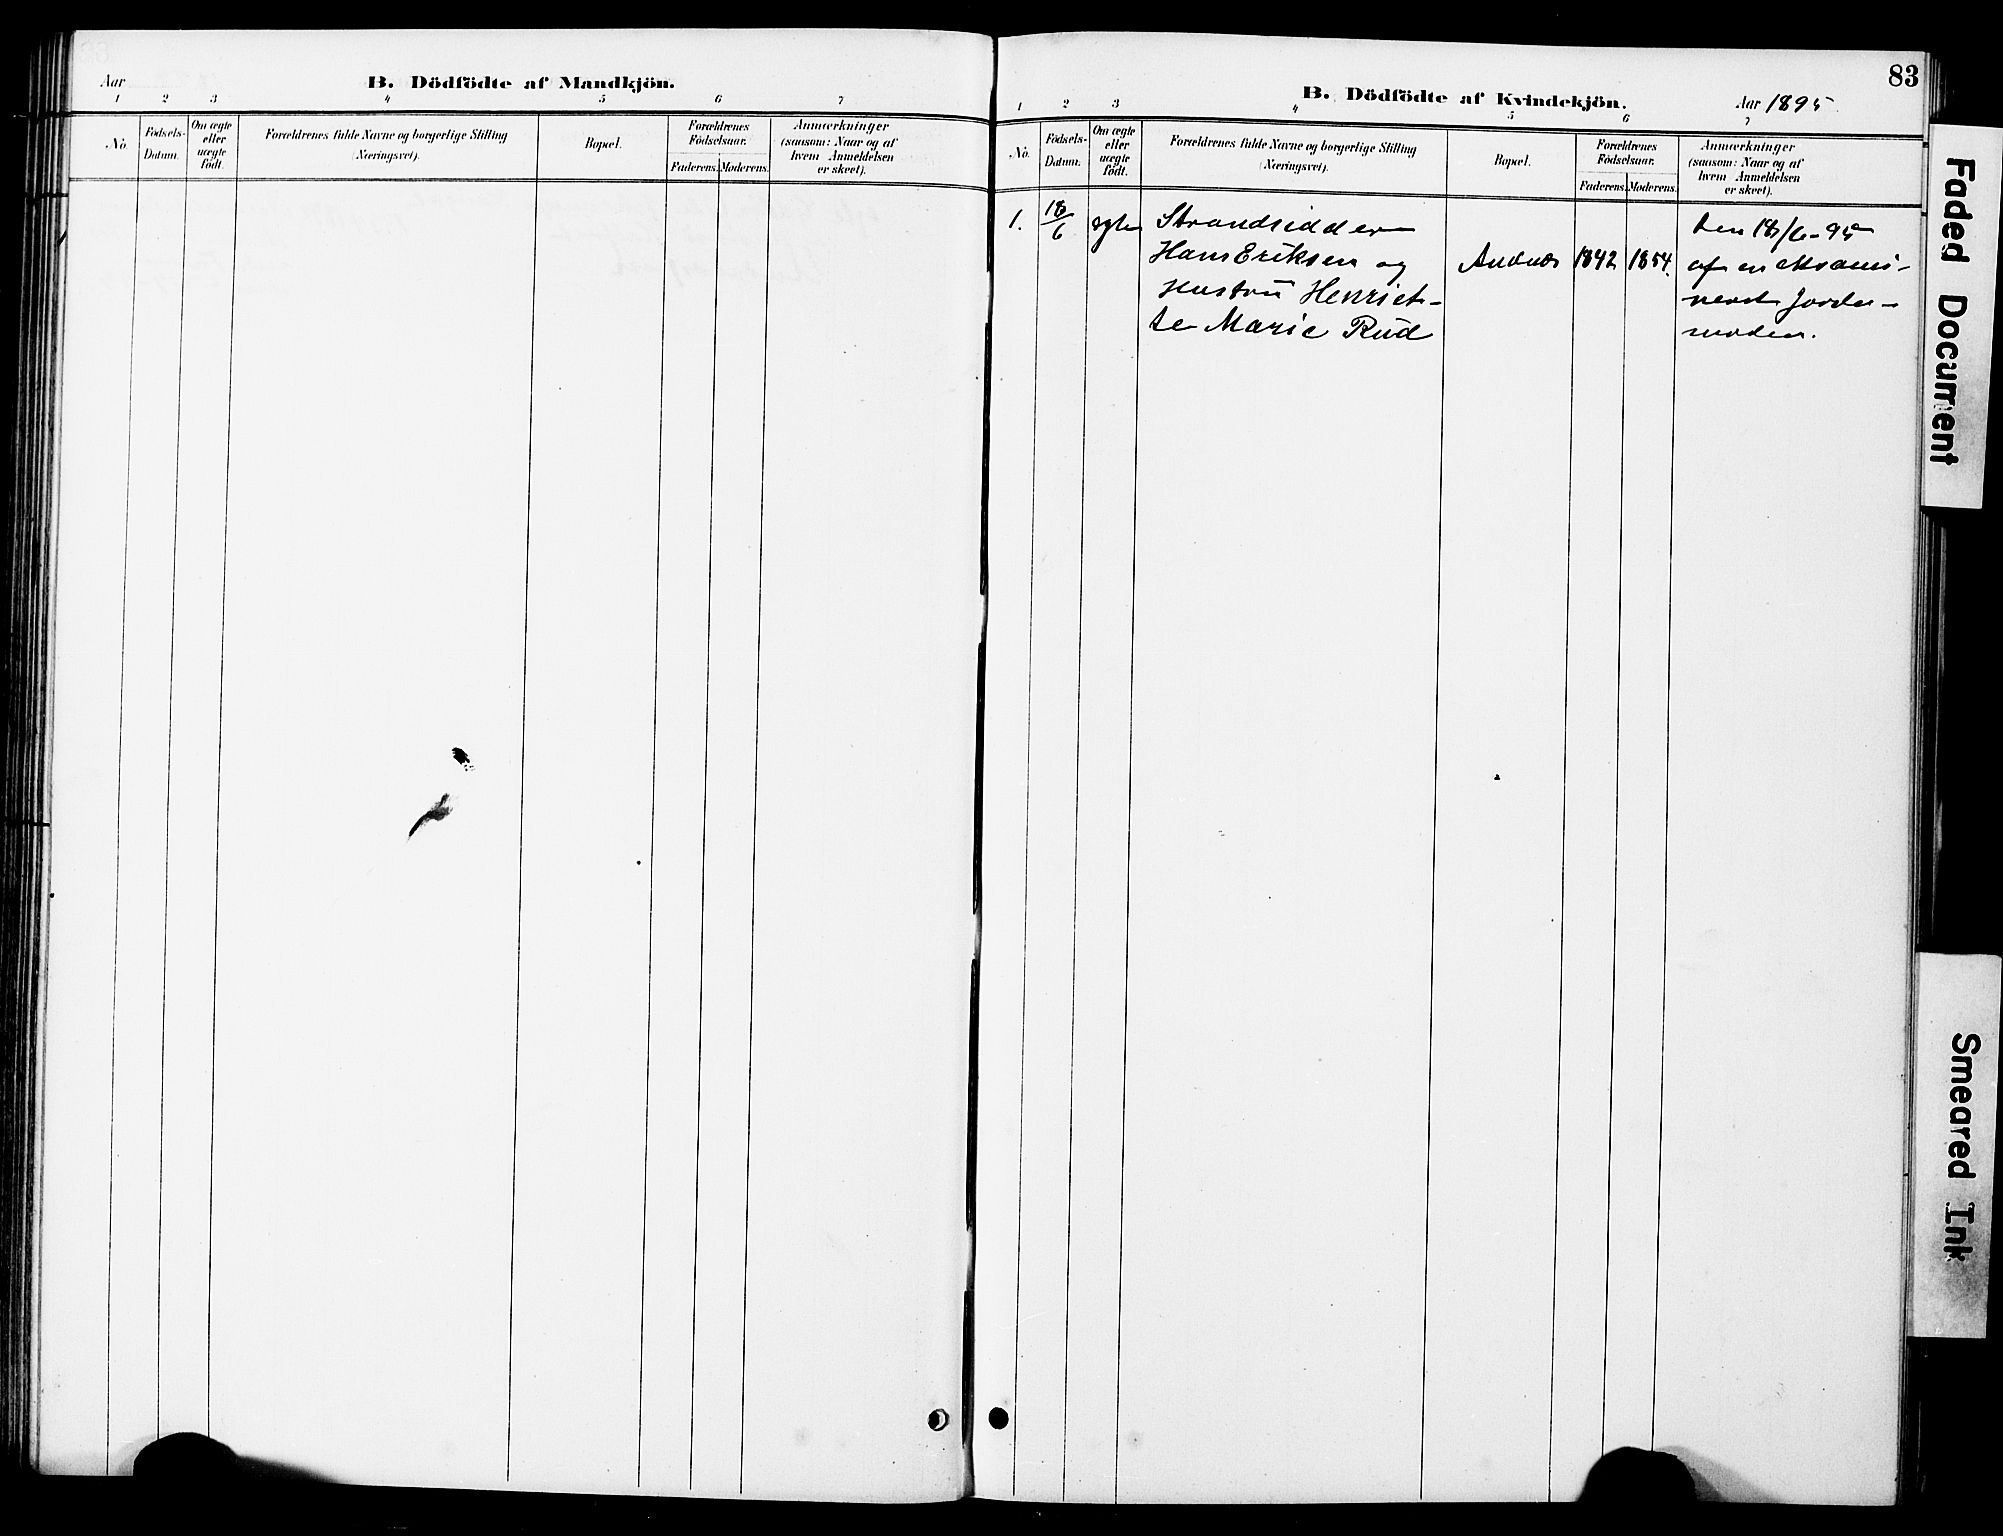 Aar
B. Dödfödte af Mandkjön.
1 2 3 4 5 6 7
No.
Födsels-
Datum.
Om ægte
eller
uægte
födt.
Forældrenes fulde Navne og borgerlige Stilling
(Næringsvei).
Bopæl.
Forældrenes
Födselsaar.
Faderens. Moderens.
Anmærkninger
(saasom: Naar og af
hvem Anmeldelsen
er skeet).
83
B. Dödfödte af Kvindekjön.
Aar 1895
1 2 3 4 5 6 7
No.
Födsels-
Datum.
Om ægte
eller
uægte
födt.
Forældrenes fulde Navne og borgerlige Stilling
(Næringsvei).
Bopæl.
Forældrenes
Födselsaar.
Faderens. Moderens.
Anmærkninger
(saasom: Naar og af
hvem Anmeldelsen
er skeet).
1.
18/6
ægte
Strandsidder
Hans Eriksen og
Hustru Henriet-
te Marie Rud
1842
1854.
den 18/6-95
af en eksami-
neret Jorde-
moder.
Faded Document
Smeared Ink